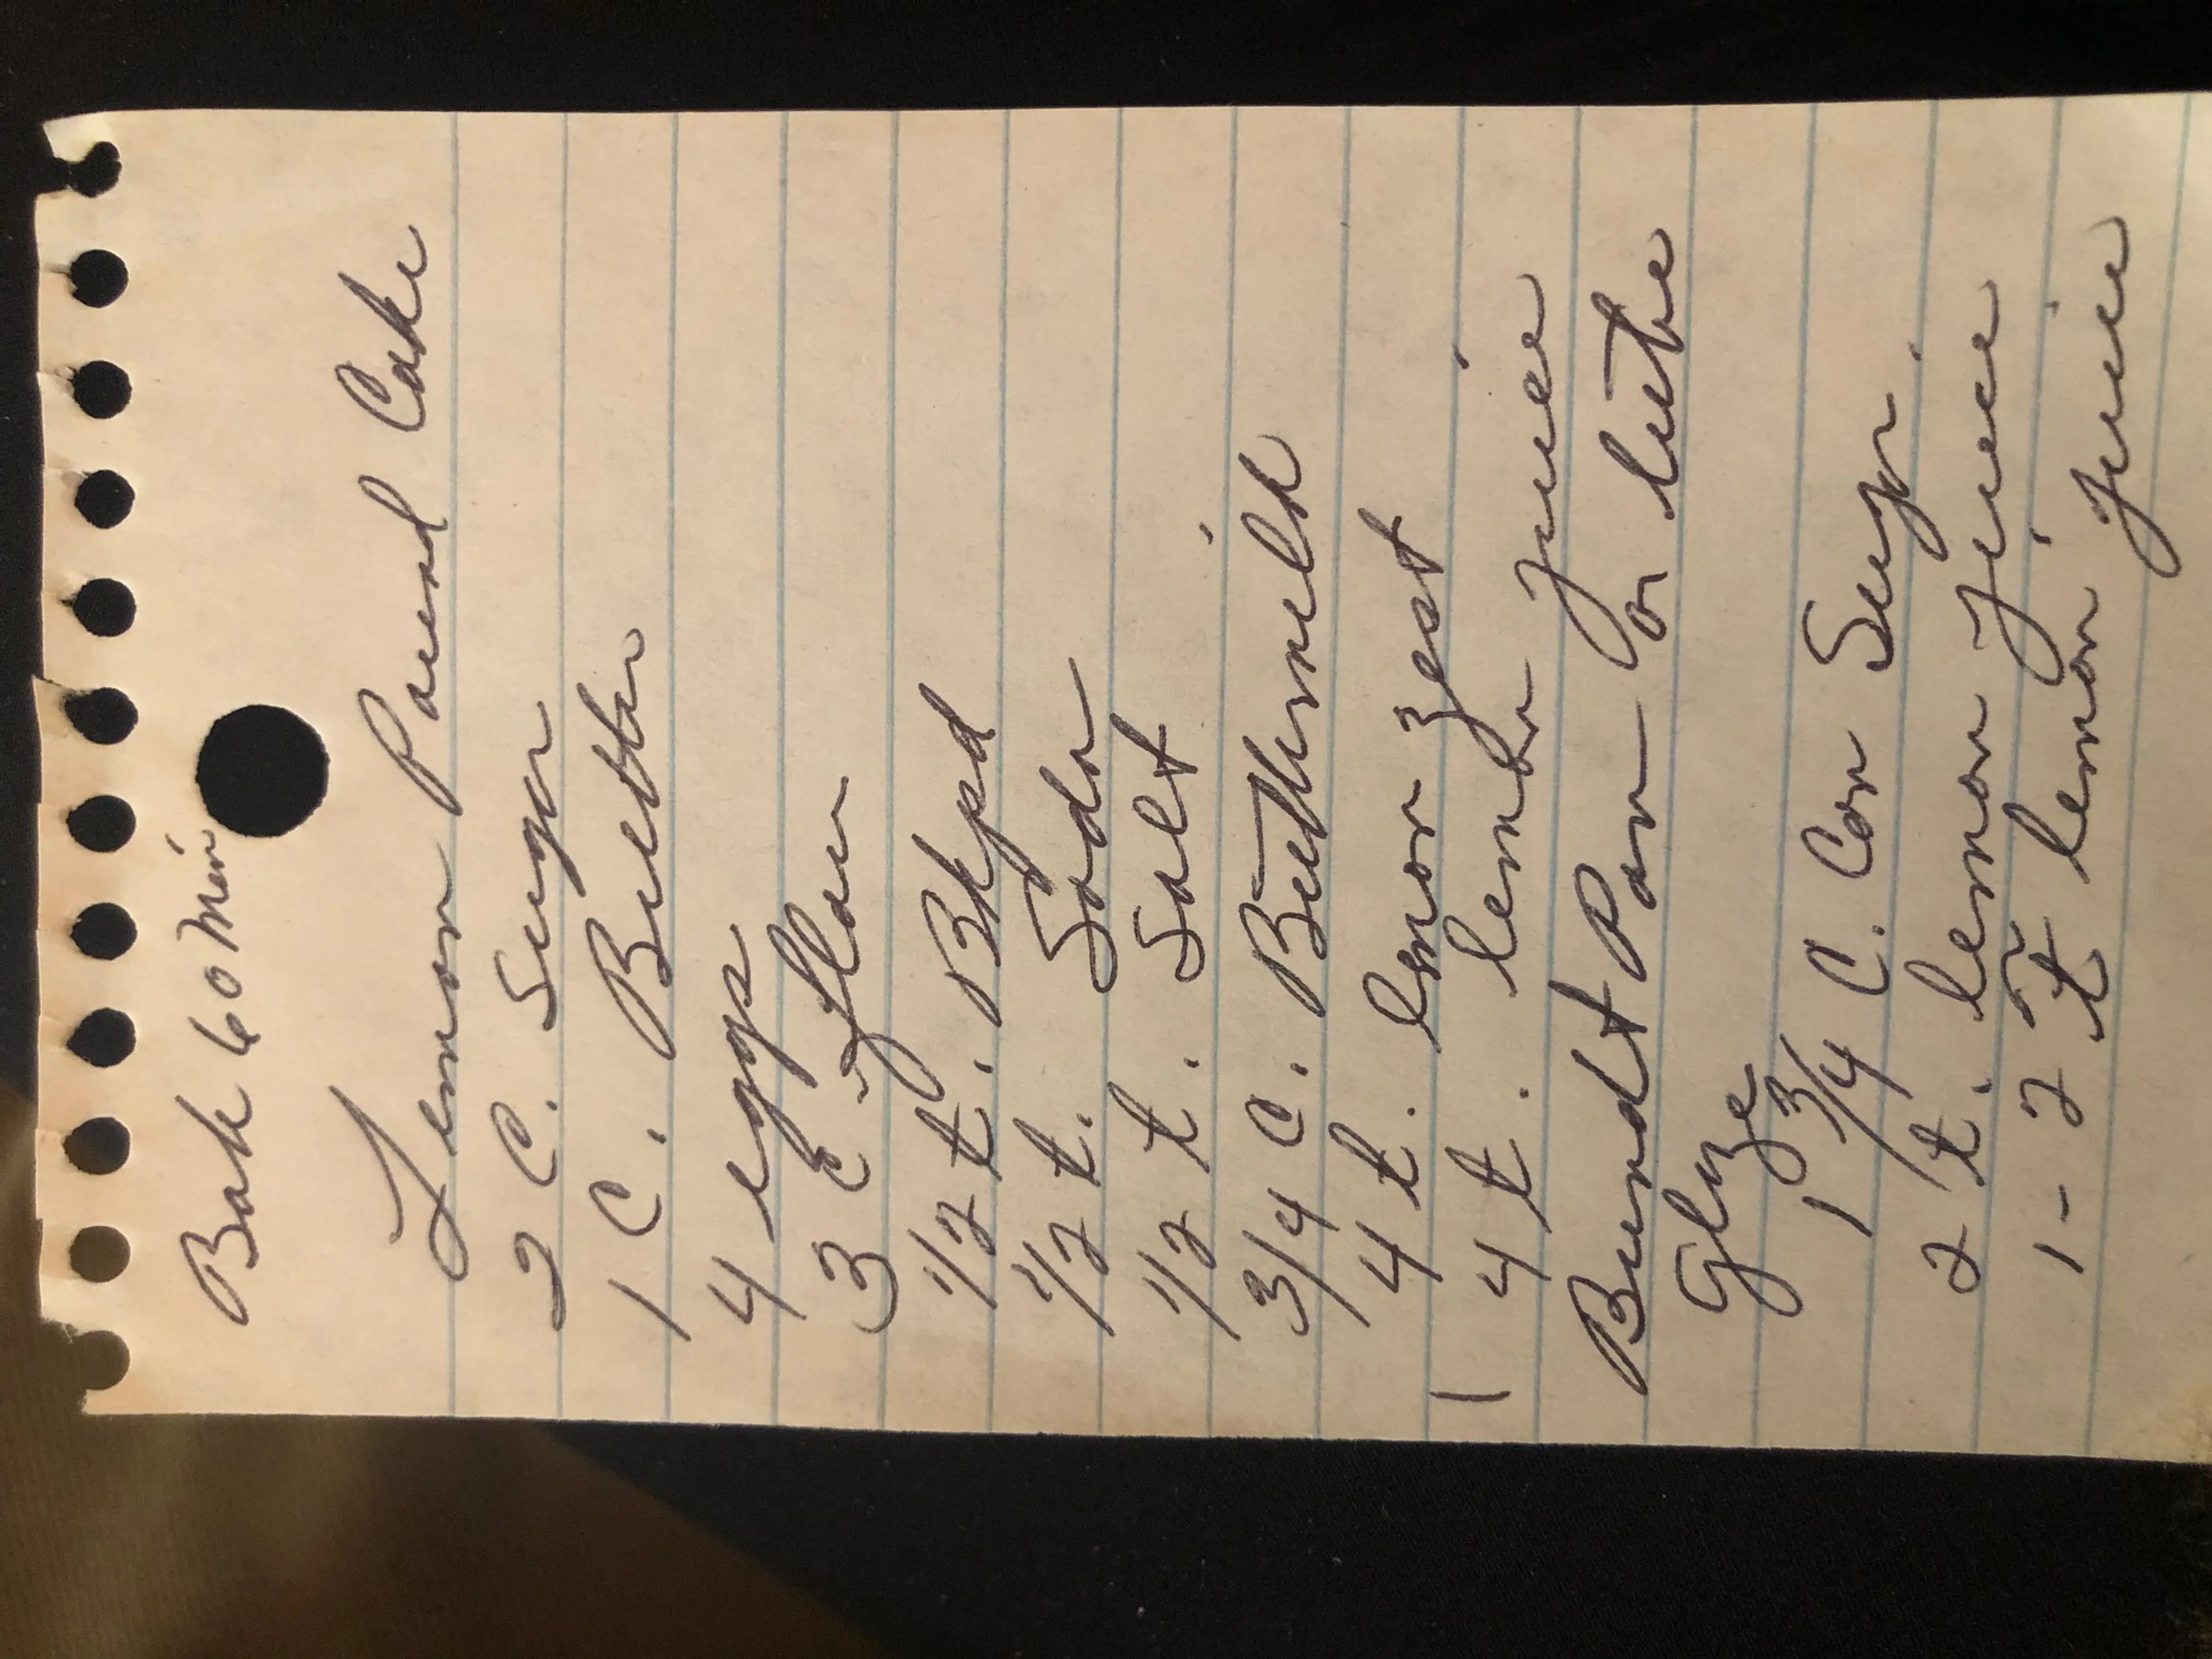 Bake 60 Min
Lemon Pound Cake
2 C. Sugar
1 C. Butter
4 eggs
3 C flour
1/2 t. Bkpd
1/2 t. Soda
1/2 t. Salt
3/4 C. Buttermilk
4 t. lemon zest
4 t. lemon juice
Bundt Pan - or tube
Glaze
1 3/4 C. Con Sugr.
2 t. lemon juice
1-2 t lemon juice